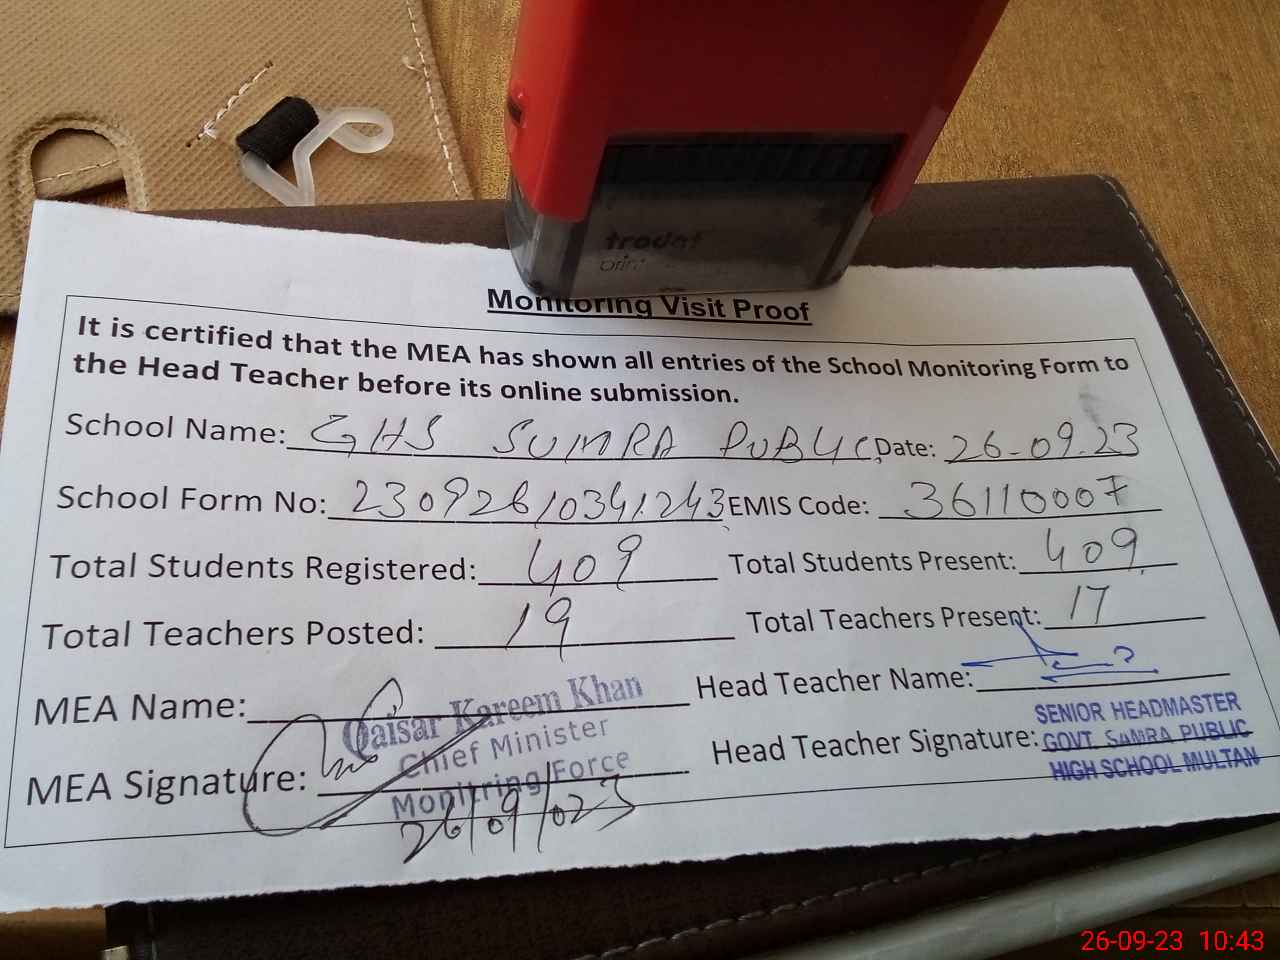 trodat
print
Monitoring Visit Proof
It is certified that the MEA has shown all entries of the School Monitoring Form to
the Head Teacher before its online submission.
School Name: GHS SUMRA PUBLIC Date: 26-09.23
School Form No: 23092610341243 EMIS Code: 36110007
Total Students Registered: 409 Total Students Present: 409
Total Teachers Posted: 19 Total Teachers Present: 17
MEA Name: Qaisar Kareem Khan Head Teacher Name:
Chief Minister
MEA Signature: Monitring Force Head Teacher Signature:
26/09/023
SENIOR HEADMASTER
GOVT. SAMRA PUBLIC
HIGH SCHOOL MULTAN
26-09-23 10:43